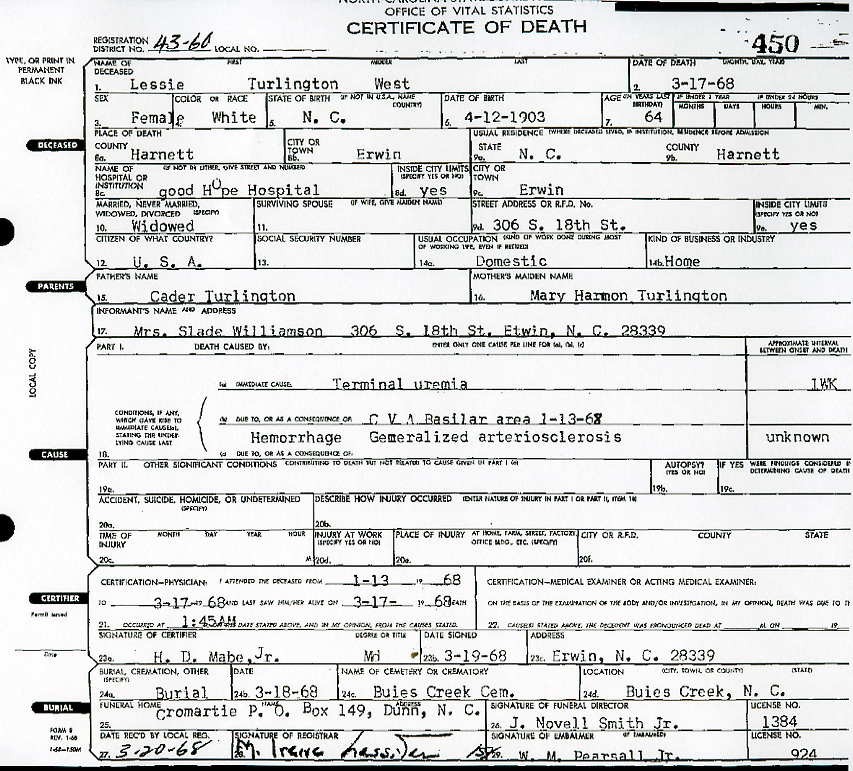 OFFICE OF VITAL STATISTICS
CERTIFICATE OF DEATH
REGISTRATION DISTRICT NO. 43-60 LOCAL NO. 450
TYPE, OR PRINT IN PERMANENT BLACK INK
NAME OF DECEASED FIRST MIDDLE LAST DATE OF DEATH (MONTH, DAY, YEAR)
1. Lessie Turlington West 2. 3-17-68
SEX COLOR OR RACE STATE OF BIRTH (IF NOT IN U.S.A., NAME COUNTRY) DATE OF BIRTH AGE (IN YEARS LAST BIRTHDAY) IF UNDER 1 YEAR IF UNDER 24 HOURS
MONTHS DAYS HOURS MIN.
3. Female 4. White 5. N. C. 6. 4-12-1903 7. 64
DECEASED
PLACE OF DEATH USUAL RESIDENCE (WHERE DECEASED LIVED, IF INSTITUTION, RESIDENCE BEFORE ADMISSION
COUNTY CITY OR TOWN STATE COUNTY
8a. Harnett 8b. Erwin 9a. N. C. 9b. Harnett
NAME OF HOSPITAL OR INSTITUTION (IF NOT IN EITHER, GIVE STREET AND NUMBER) INSIDE CITY LIMITS (SPECIFY YES OR NO) CITY OR TOWN
8c. good Hope Hospital 8d. yes 9c. Erwin
MARRIED, NEVER MARRIED, WIDOWED, DIVORCED (SPECIFY) SURVIVING SPOUSE (IF WIFE, GIVE MAIDEN NAME) STREET ADDRESS OR R.F.D. No. INSIDE CITY LIMITS (SPECIFY YES OR NO)
10. Widowed 11. 9d. 306 S. 18th St. 9e. yes
CITIZEN OF WHAT COUNTRY? SOCIAL SECURITY NUMBER USUAL OCCUPATION (KIND OF WORK DONE DURING MOST OF WORKING LIFE, EVEN IF RETIRED) KIND OF BUSINESS OR INDUSTRY
12. U. S. A. 13. 14a. Domestic 14b. Home
PARENTS
FATHER'S NAME MOTHER'S MAIDEN NAME
15. Cader Turlington 16. Mary Harmon Turlington
INFORMANT'S NAME AND ADDRESS
17. Mrs. Slade Williamson 306 S. 18th St. Etwin, N. C. 28339
LOCAL COPY
PART I. DEATH CAUSED BY: ENTER ONLY ONE CAUSE PER LINE FOR (a), (b), (c) APPROXIMATE INTERVAL BETWEEN ONSET AND DEATH
(a) IMMEDIATE CAUSE: Terminal uremia 1WK
CONDITIONS, IF ANY, WHICH GAVE RISE TO IMMEDIATE CAUSE(S), STATING THE UNDERLYING CAUSE LAST
(b) DUE TO, OR AS A CONSEQUENCE OF C V A Basilar area 1-13-68
Hemorrhage Gemeralized arteriosclerosis unknown
18. (c) DUE TO, OR AS A CONSEQUENCE OF:
CAUSE
PART II. OTHER SIGNIFICANT CONDITIONS CONTRIBUTING TO DEATH BUT NOT RELATED TO CAUSE GIVEN IN PART I (a) AUTOPSY? (YES OR NO) IF YES WERE FINDINGS CONSIDERED IN DETERMINING CAUSE OF DEATH
19a. 19b. 19c.
ACCIDENT, SUICIDE, HOMICIDE, OR UNDETERMINED (SPECIFY) DESCRIBE HOW INJURY OCCURRED (ENTER NATURE OF INJURY IN PART I OR PART II, ITEM 18)
20a. 20b.
TIME OF INJURY MONTH DAY YEAR HOUR INJURY AT WORK (SPECIFY YES OR NO) PLACE OF INJURY AT HOME, FARM, STREET, FACTORY, OFFICE BLDG., ETC. (SPECIFY) CITY OR R.F.D. COUNTY STATE
20c. M 20d. 20e. 20f.
CERTIFIER
CERTIFICATION—PHYSICIAN: I ATTENDED THE DECEASED FROM 1-13 19 68 CERTIFICATION—MEDICAL EXAMINER OR ACTING MEDICAL EXAMINER:
TO 3-17-19 68 AND LAST SAW HIM/HER ALIVE ON 3-17- 19 68 DEATH ON THE BASIS OF THE EXAMINATION OF THE BODY AND/OR INVESTIGATION, IN MY OPINION, DEATH WAS DUE TO TH
21. OCCURRED AT 1:45AM ON THE DATE STATED ABOVE, AND IN MY OPINION, FROM THE CAUSES STATED. 22. CAUSE(S) STATED ABOVE. THE DECEDENT WAS PRONOUNCED DEAD AT M. ON 19
Permit Issued
Title
SIGNATURE OF CERTIFIER DEGREE OR TITLE DATE SIGNED ADDRESS
23a. H. D. Mabe, Jr. Md 23b. 3-19-68 23c. Erwin, N. C. 28339
BURIAL, CREMATION, OTHER (SPECIFY) DATE NAME OF CEMETERY OR CREMATORY LOCATION (CITY, TOWN, OR COUNTY) (STATE)
24a. Burial 24b. 3-18-68 24c. Buies Creek Cem. 24d. Buies Creek, N. C.
BURIAL
FUNERAL HOME ADDRESS SIGNATURE OF FUNERAL DIRECTOR LICENSE NO.
25. Cromartie P. O. Box 149, Dunn, N. C. 26. J. Novell Smith Jr. 1384
FORM 8
REV. 1-68
1-68—150M
DATE REC'D BY LOCAL REG. SIGNATURE OF REGISTRAR SIGNATURE OF EMBALMER (IF EMBALMED) LICENSE NO.
27. 3-20-68 28. M. Irene Lassiter 29. W. M. Pearsall Jr. 924